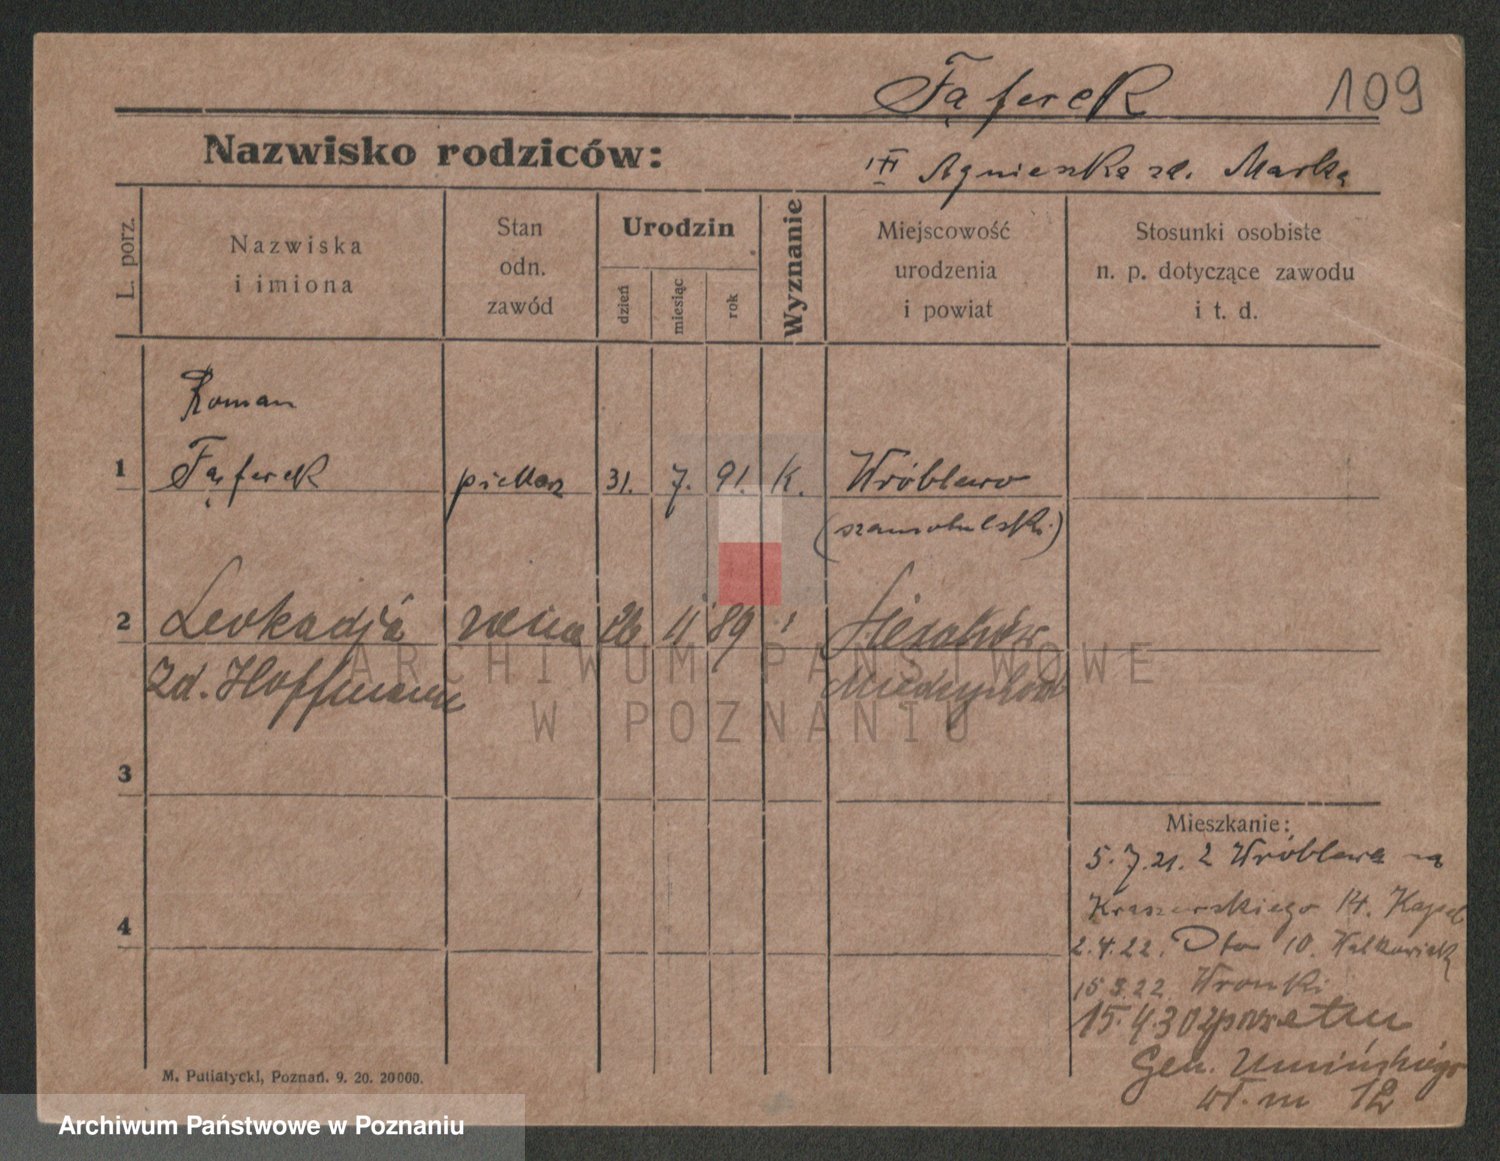 Fąferek 109
Nazwisko rodziców:
Agnieszka zd.
L. porz.
Nazwiska
i imiona
Stan
odn.
zawód
Urodzin
dzień
miesiąc
rok
Wyznanie
Miejscowość
urodzenia
i powiat
Stosunki osobiste
n. p. dotyczące zawodu
i t. d.
Roman
1 Fąferek piekarz 31. 7. 91. k. Wróblewo
(szamotulski)
2 Leokadja 26 11 89 Sieraków
zd. Hoffmann Międzychód
ARCHIWUM PAŃSTWOWE
W POZNANIU
3
Mieszkanie:
5.7.21. z Wróblewa na
4 Kraszewskiego 14.
2.4.22. 10.
22 Wronki
15.4.30 z powrotem
Gen. Umińskiego
12
M. Putiatycki, Poznań. 9. 20. 20000.
Archiwum Państwowe w Poznaniu